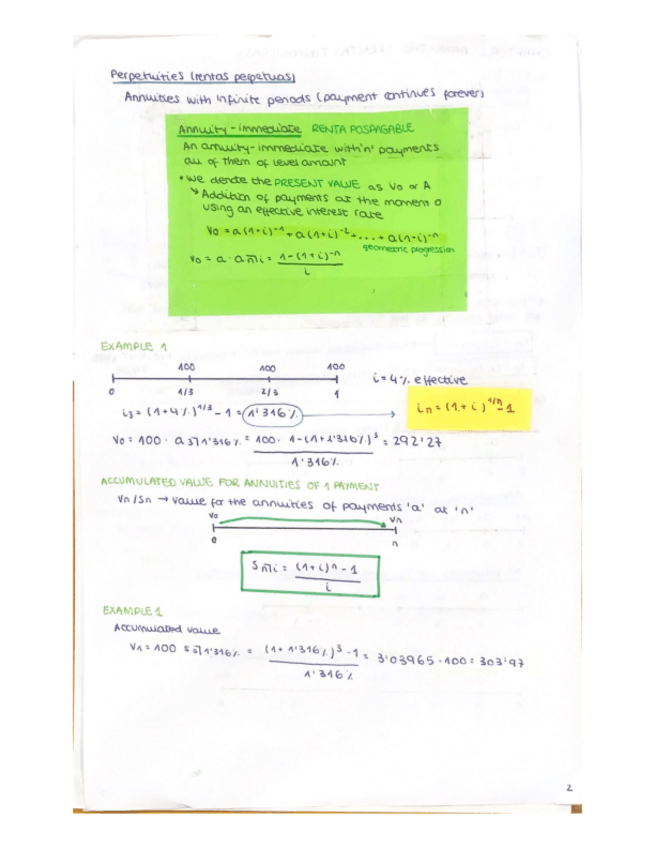 Perpetuities (rentas perpetuas)
Annuities with infinite periods (payment continues forever)
Annuity-immediate RENTA POSPAGABLE
An annuity-immediate with 'n' payments
all of them of level amount
• we denote the PRESENT VALUE as V0 or A
↳ Addition of payments at the moment 0
using an effective interest rate
V0 = a(1+i)^-1 + a(1+i)^-2 + ... + a(1+i)^-n
geometric progression
V0 = a · a n̅| i = 1-(1+i)^-n / i
EXAMPLE 1
100 100 100
0 1/3 2/3 1
i = 4% effective
i3 = (1+4%)^1/3 - 1 = 1'316% → in = (1+i)^1/n - 1
V0 = 100 · a 3̅| 1'316% = 100 · 1-(1+1'316%)^3 / 1'316% = 292'27
ACCUMULATED VALUE FOR ANNUITIES OF 1 PAYMENT
Vn/Sn → value for the annuities of payments 'a' at 'n'
V0 Vn
0 n
S n̅| i = (1+i)^n - 1 / i
EXAMPLE 1
Accumulated value
V1 = 100 S 3̅| 1'316% = (1+1'316%)^3 - 1 / 1'316% = 3'03965 · 100 = 303'97
2